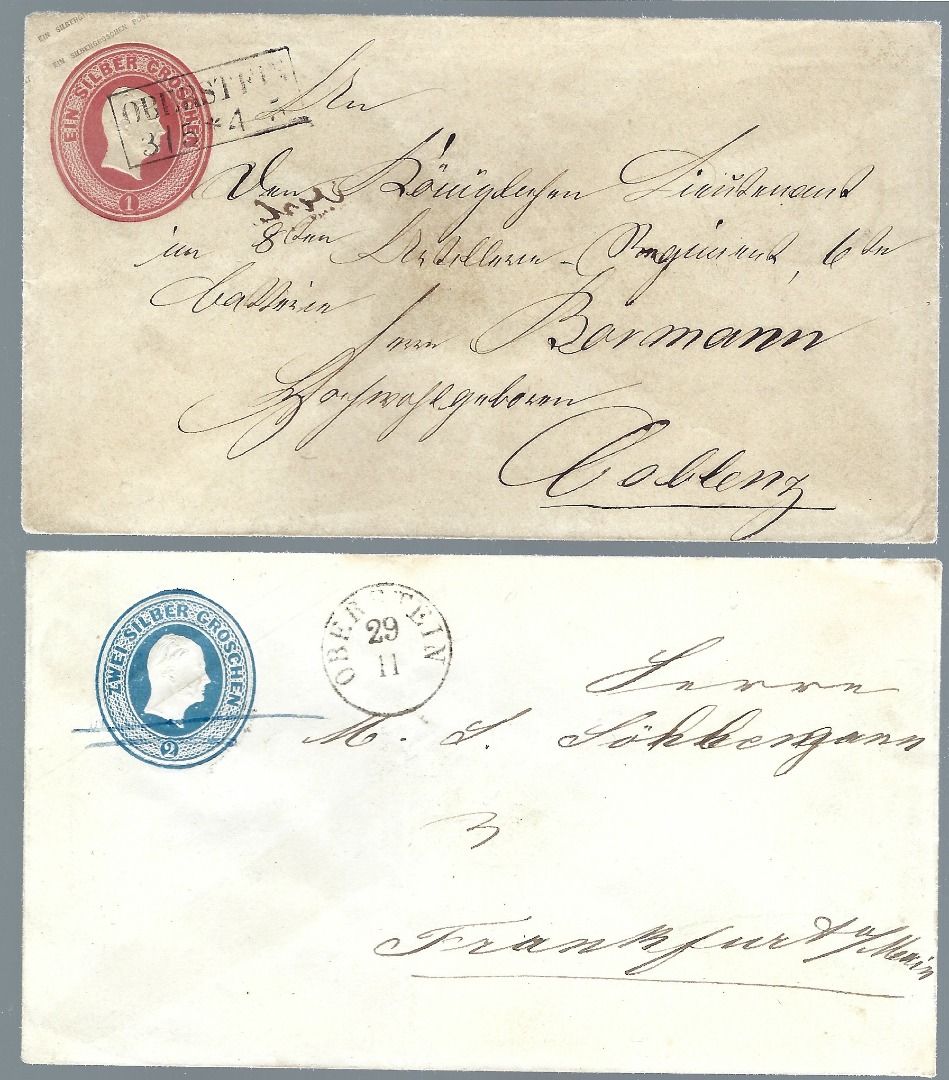 EIN SILBERGROSCHEN POST
EIN SILBER GROSCHEN
1
OBERSTEIN
31 5 * 4-5
An
Den Königlichen Lieutenant
im 8ten Artillerie-Regiment, 6te
Batterie
Herrn Bormann
Hochwohlgeboren
Coblenz
ZWEI SILBER GROSCHEN
2
OBERSTEIN
29
11
Herrn
M. S.
Frankfurt a/Main